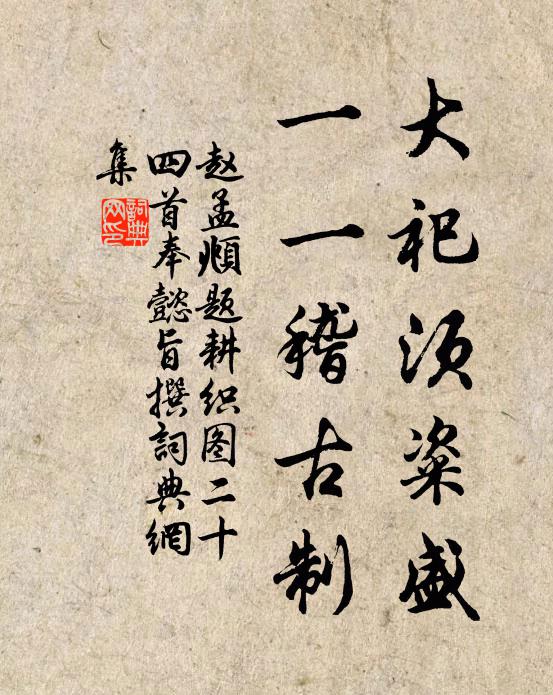 大祀须粢盛
一一稽古制
赵孟頫题耕织图二十
四首奉懿旨撰詞典網
集
詞典网印